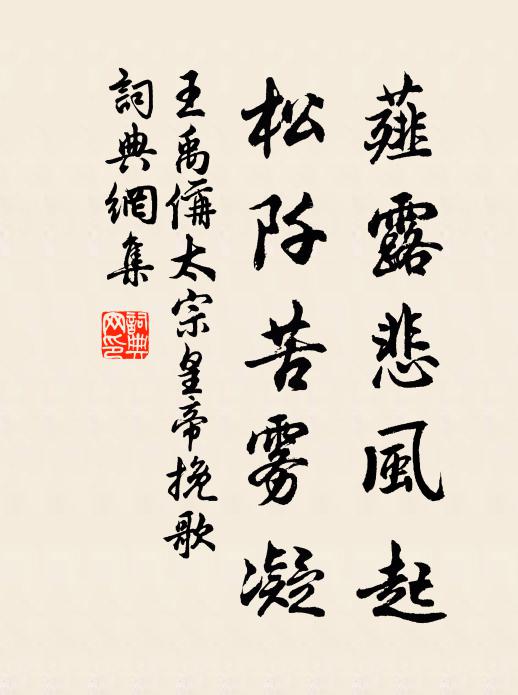 薤露悲風起
松阡苦雾凝
王禹偁太宗皇帝挽歌
詞典網集
詞典網印